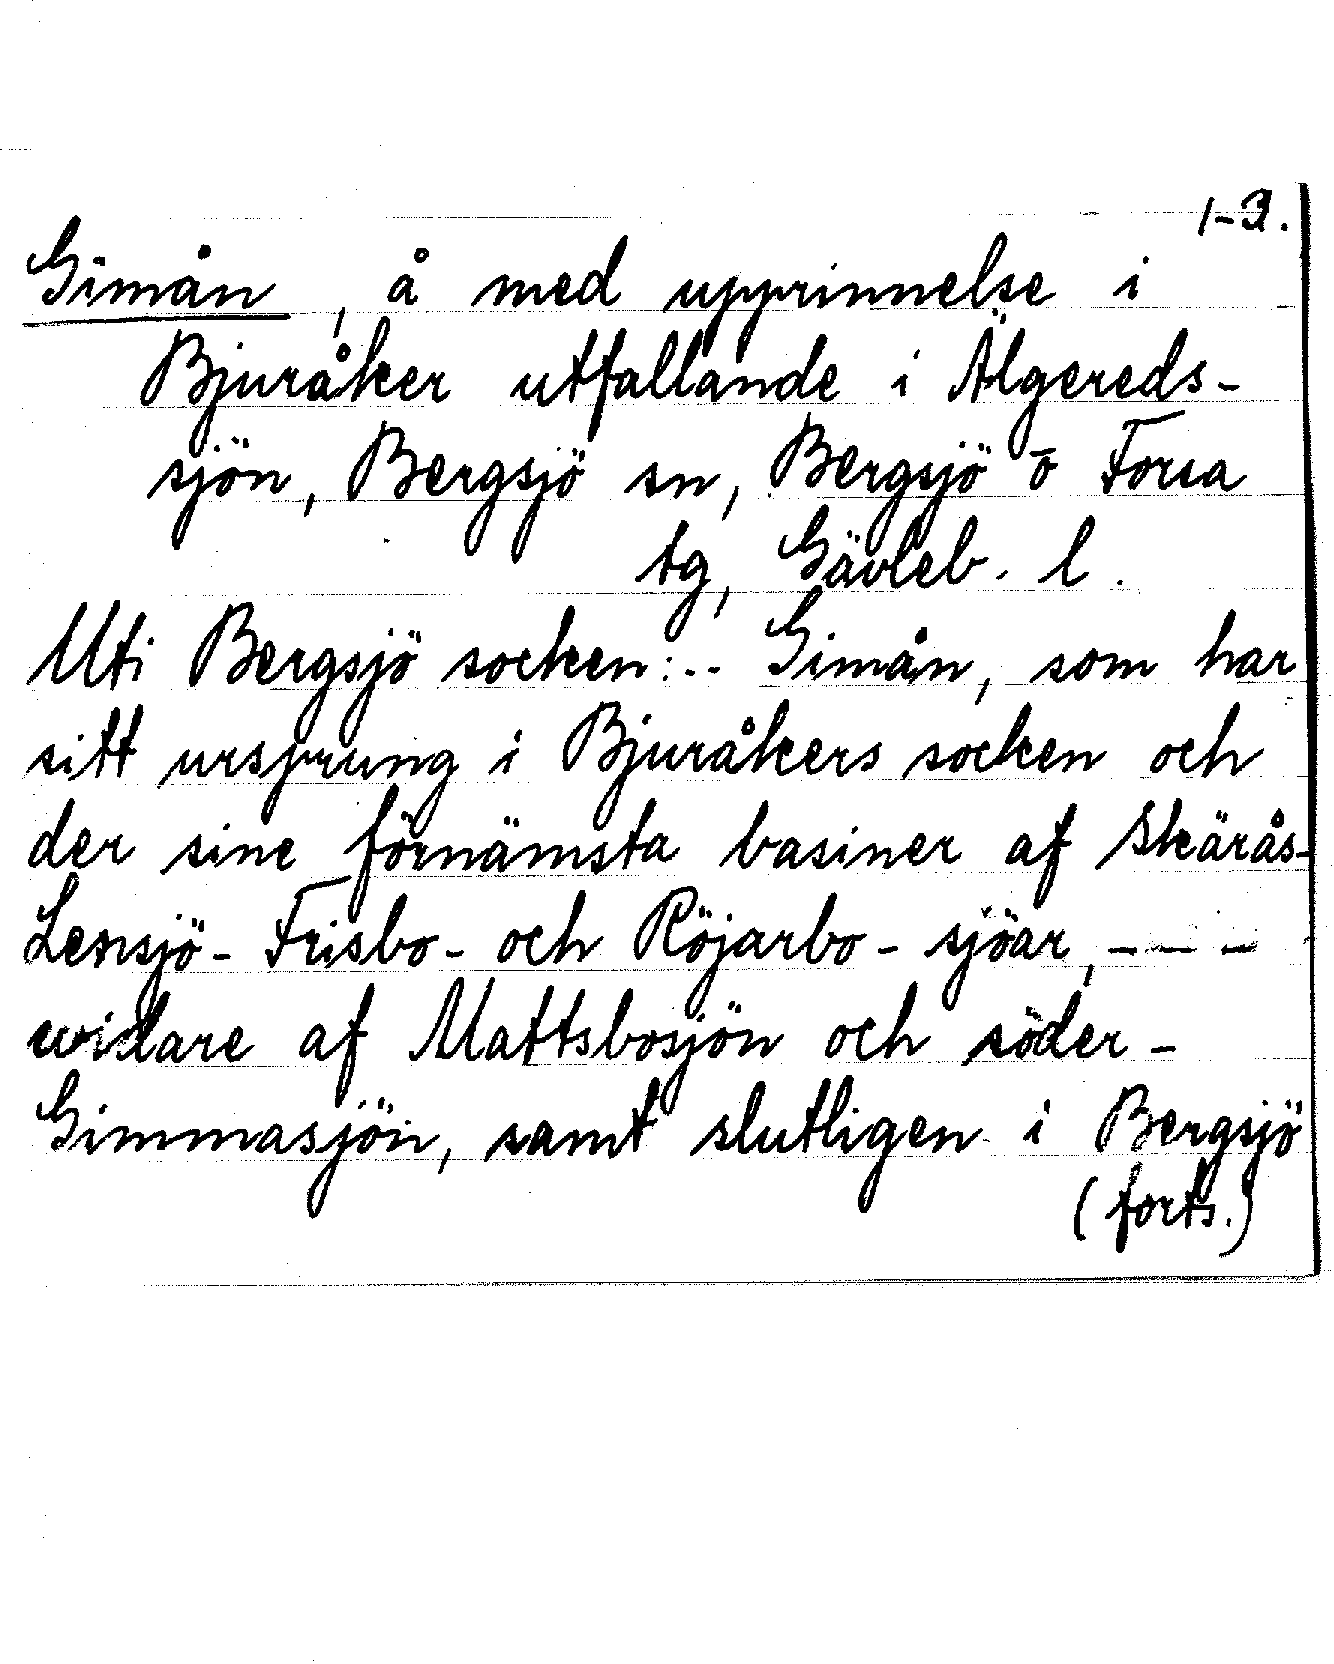 1-3.
Gimån, å med upprinnelse i
Bjuråker utfallande i Älgereds-
sjön, Bergsjö sn, Bergsjö o Forsa
tg, Gävleb. l.
Uti Bergsjö socken:.. Gimån, som har
sitt ursprung i Bjuråkers socken och
der sine förnämsta basiner af Skärås-
Lensjö- Frisbo- och Röjarbo- sjöar, - - -
widare af Mattsbosjön och söder-
Gimmasjön, samt slutligen i Bergsjö
(forts.)